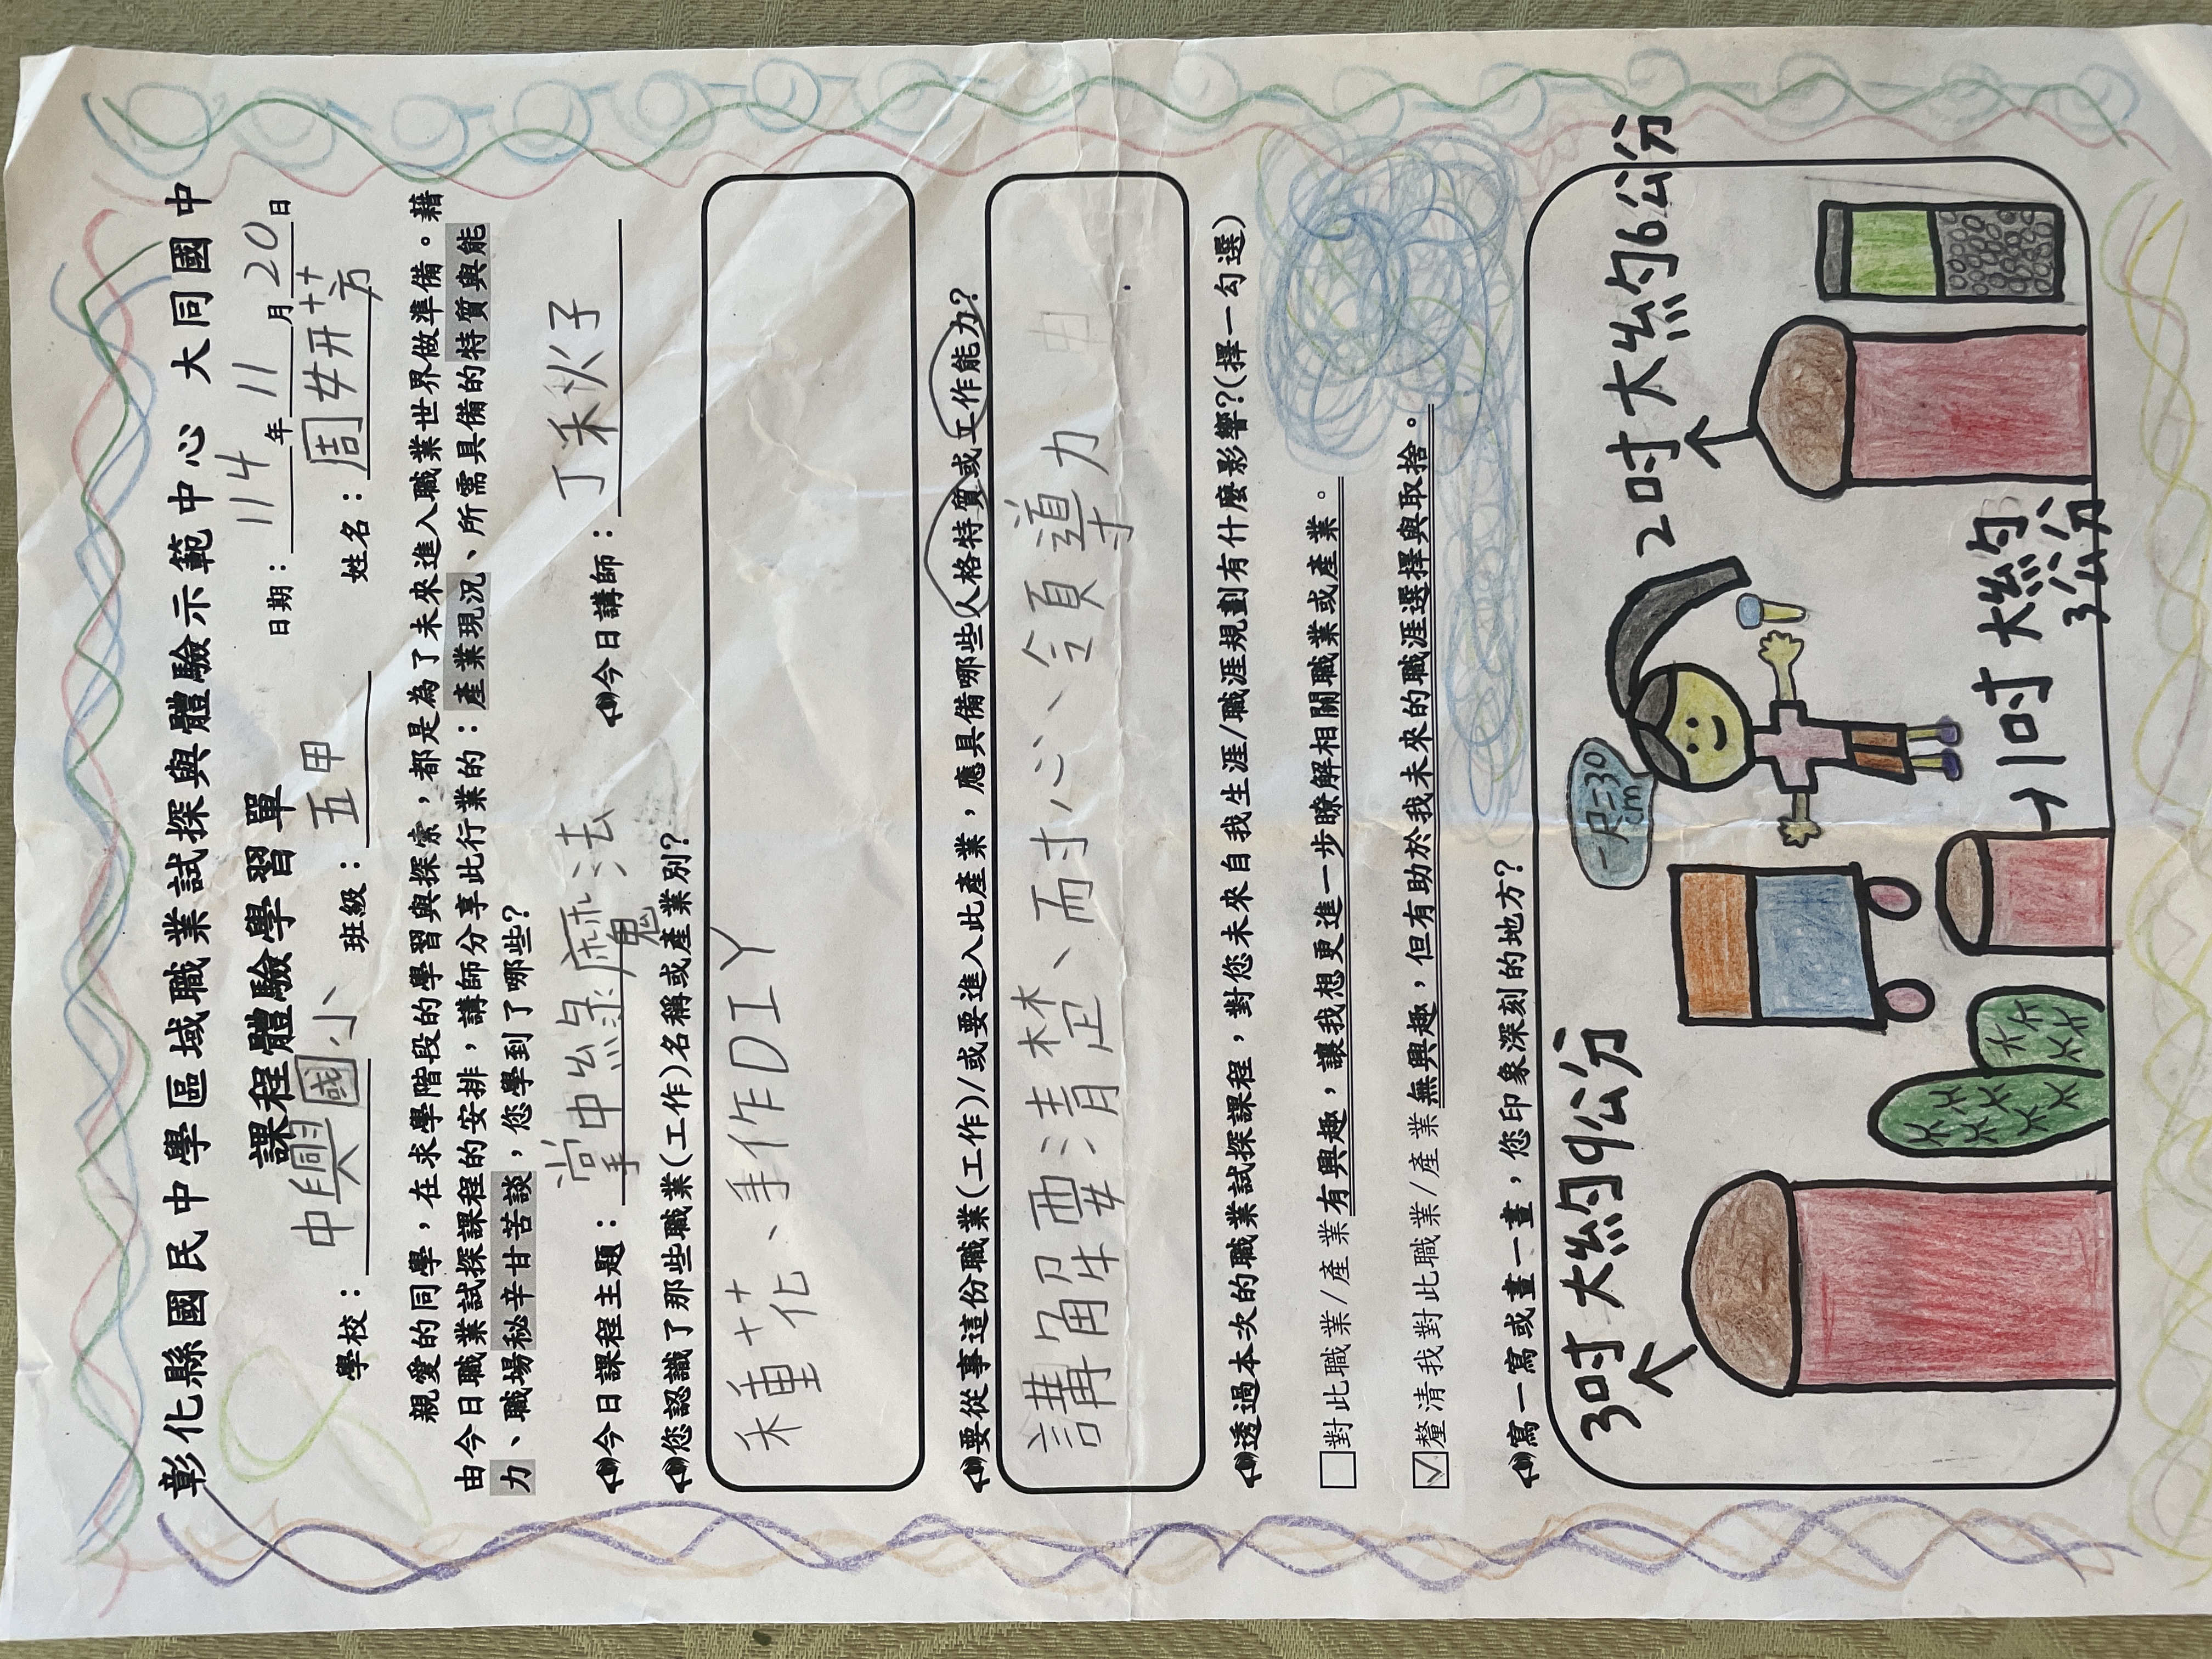 彰化縣國民中學區域職業試探與體驗示範中心 大同國中
課程體驗學習單
日期：114年11月20日
學校：中興國小 班級：五甲 姓名：周妍芳
親愛的同學，在求學階段的學習與探索，都是為了未來進入職業世界做準備。藉
由今日職業試探課程的安排，講師分享此行業的：產業現況、所需具備的特質與能
力、職場秘辛甘苦談，您學到了哪些？
今日課程主題：掌中綠魔法 今日講師：丁秋子
您認識了那些職業(工作)名稱或產業別？
種花、手作DIY
要從事這份職業(工作)/或要進入此產業，應具備哪些人格特質或工作能力？
講解要清楚、耐心、領導力
透過本次的職業試探課程，對您未來自我生涯/職涯規劃有什麼影響？(擇一勾選)
□對此職業/產業有興趣，讓我想更進一步瞭解相關職業或產業。
☑釐清我對此職業/產業無興趣，但有助於我未來的職涯選擇與取捨。
寫一寫或畫一畫，您印象深刻的地方？
3吋大約9公分
一尺=30
cm
2吋大約6公分
1吋大約
3公分